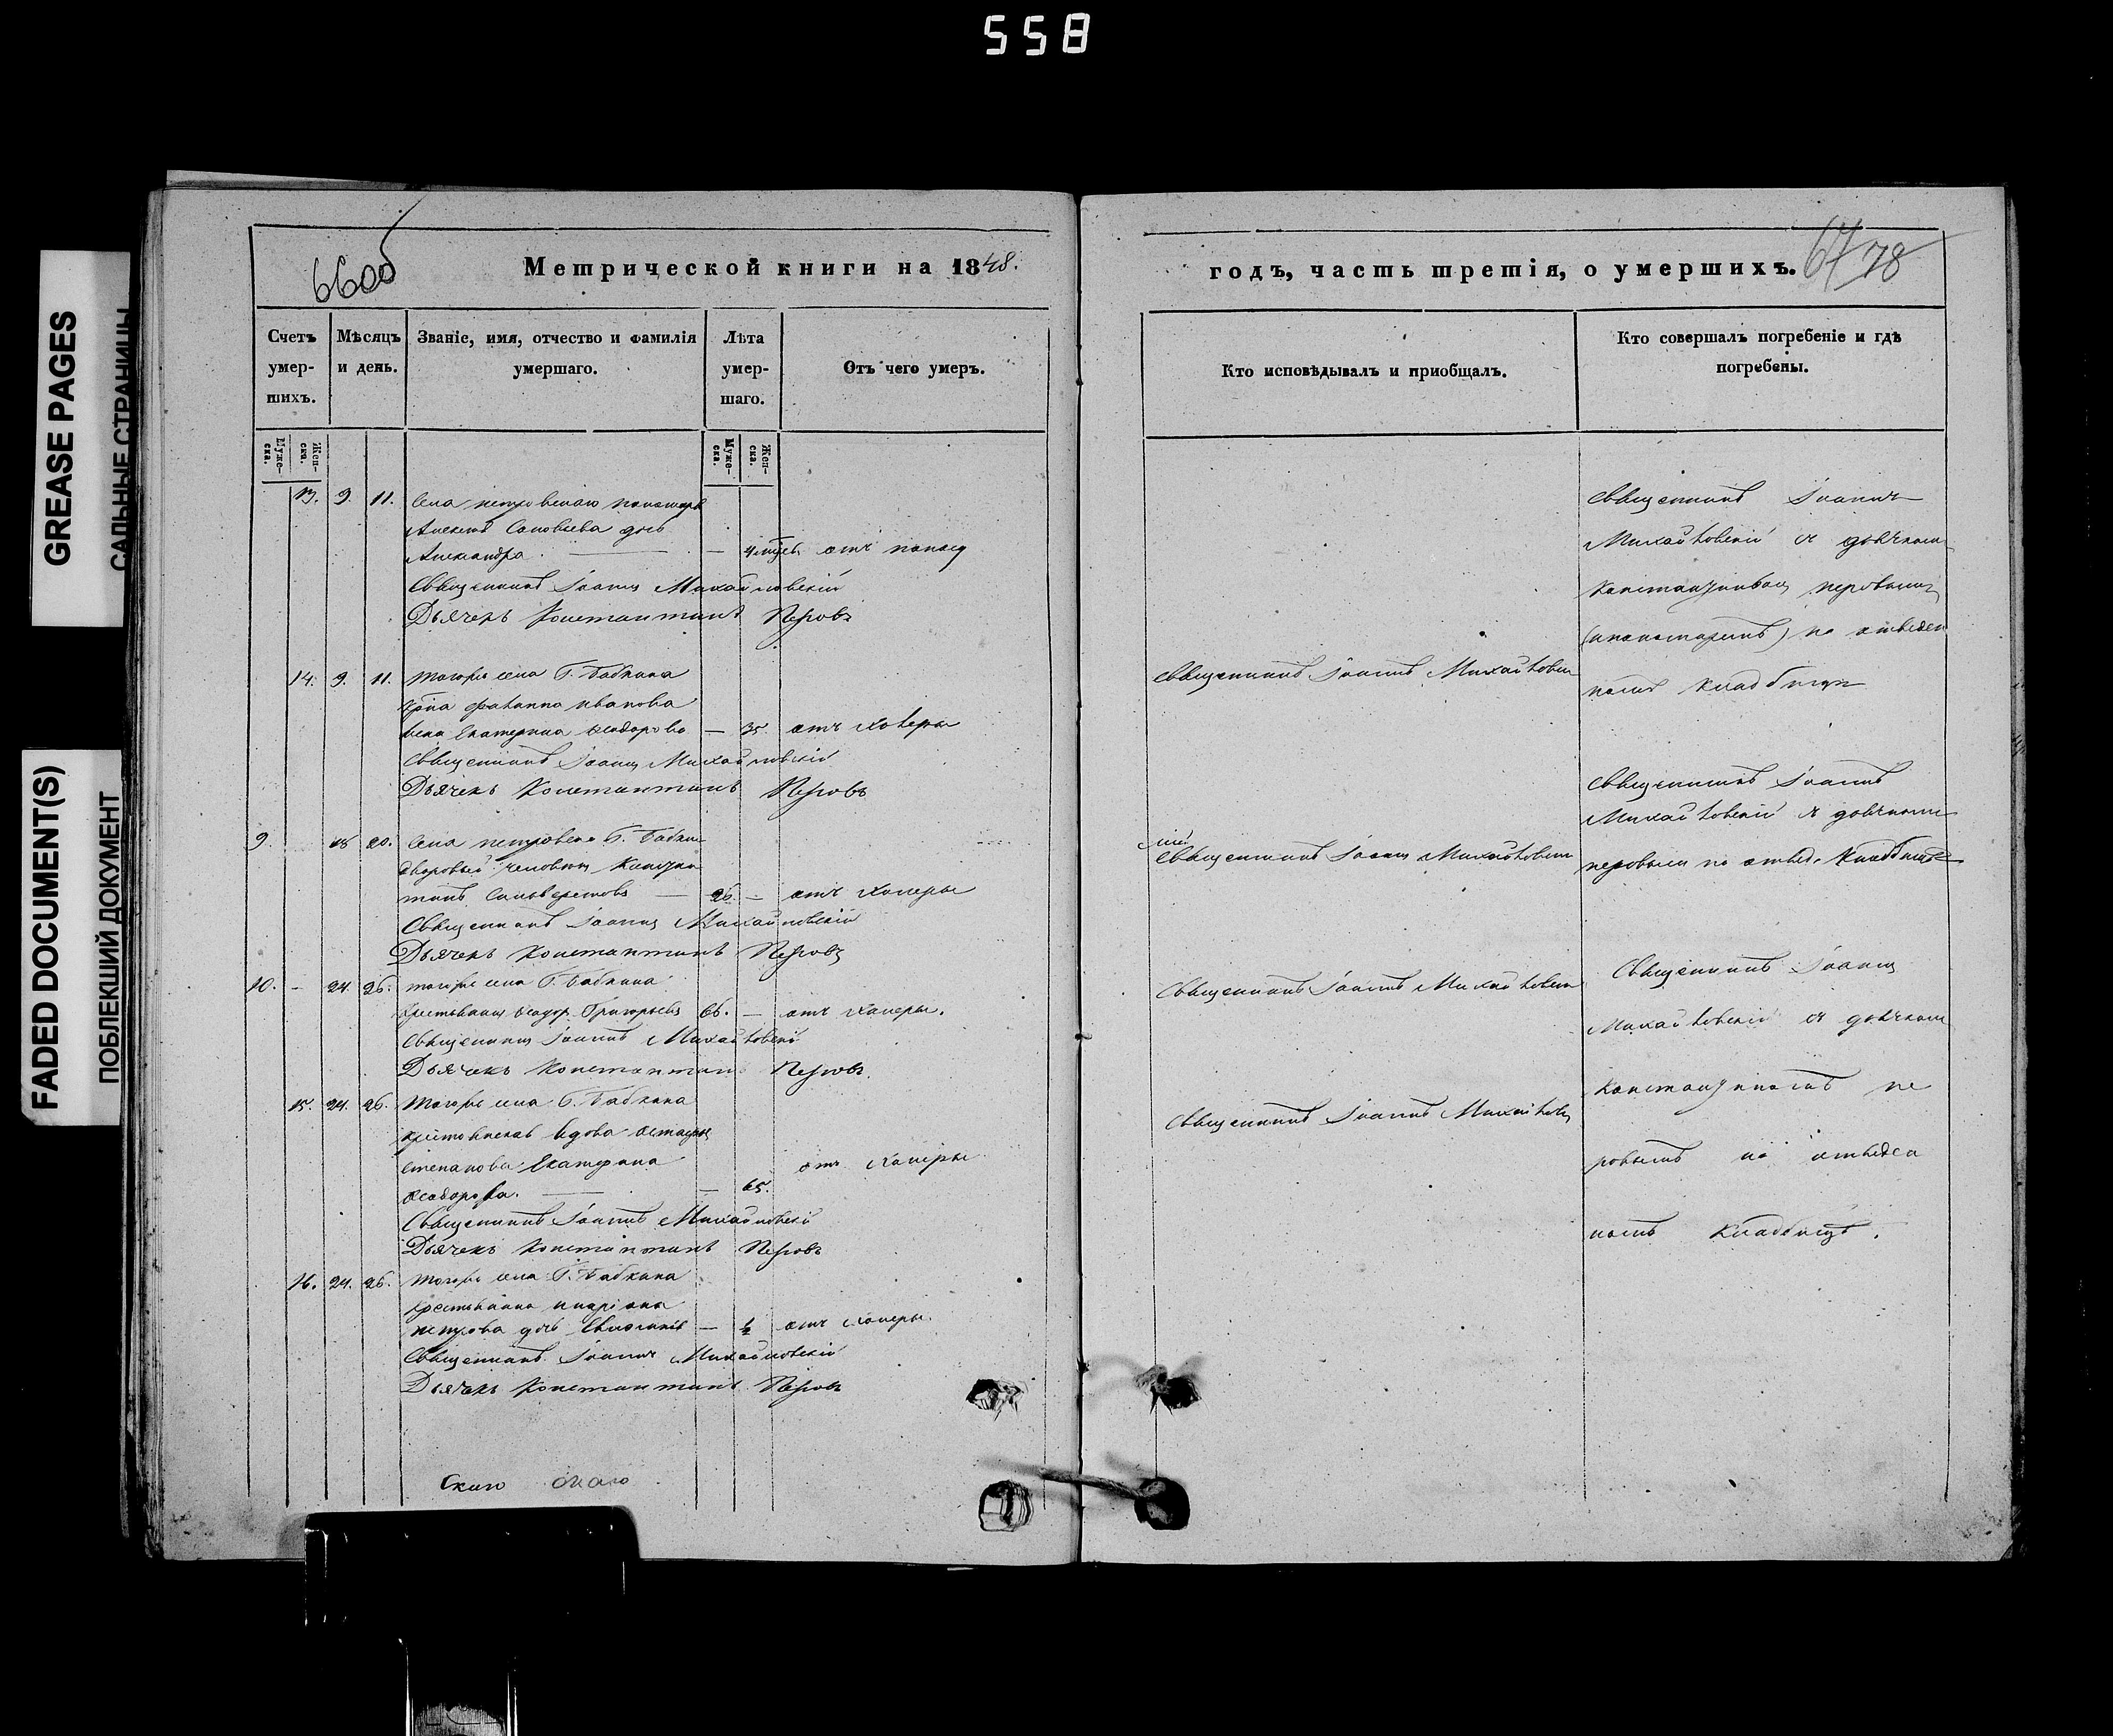 558
GREASE PAGES
САЛЬНЫЕ СТРАНИЦЫ
FADED DOCUMENT(S)
ПОБЛЕКШИЙ ДОКУМЕНТ
66об
Метрической книги на 1848.
Счетъ умер-шихъ.
Мѣсяцъ и день.
Званіе, имя, отчество и фамилія умершаго.
Лѣта умер-шаго.
Отъ чего умеръ.
Муже-ска.
Жен-ска.
Муже-ска.
Жен-ска.
13. 9. 11. Села Петровскаго пономаря
Алексѣя Соловьева дочь
Александра. — 4 отъ поносу
Священникъ Іоаннъ Михайловскій
Дьячекъ Константинъ Перовъ
14. 9. 11. тогожъ села Г. Бабкина
Иванова
жена Екатерина Ѳеодорова — 35. отъ холеры
Священникъ Іоаннъ Михайловскій
Дьячекъ Константинъ Перовъ
9. 18 20. Села Петровска Г. Бабкина
дворовый человекъ Констан
тинъ Сильверстовъ — 26. — отъ холеры
Священникъ Іоаннъ Михайловскій
Дьячекъ Константинъ Перовъ
10. — 24. 26. тогожъ села Г. Бабкина
крестьянинъ Ѳеодор. Григорьевъ 66. — отъ холеры.
Священникъ Іоаннъ Михайловскій
Дьячекъ Константинъ Перовъ.
15. 24. 26. тогожъ села Г. Бабкина
вдова
Степанова Екатерина отъ холеры
Ѳеодорова. — 65.
Священникъ Іоаннъ Михайловскій
Дьячекъ Константинъ Перовъ
16. 24. 26. тогожъ села Г. Бабкина
крестьянина Иларіона
Петрова дочь — ½ отъ холеры
Священникъ Іоаннъ Михайловскій
Дьячекъ Константинъ Перовъ
67/78
годъ, часть третія, о умершихъ.
Кто исповѣдывалъ и приобщалъ.
Кто совершалъ погребеніе и гдѣ погребены.
Священникъ Іоаннъ Михайловскій
Священникъ Іоаннъ Михайловскій
Священникъ Іоаннъ Михайловскій
Священникъ Іоаннъ Михайловскій
Священникъ Іоаннъ
Михайловскій съ дьячкомъ
Константиномъ Перовымъ
на отведен
номъ кладбищѣ
Священникъ Іоаннъ
Михайловскій съ дьячкомъ
Перовымъ на отвед. кладбищѣ
Священникъ Іоаннъ
Михайловскій съ дьячкомъ
Константиномъ Пе
ровымъ на отведен
номъ кладбищѣ.